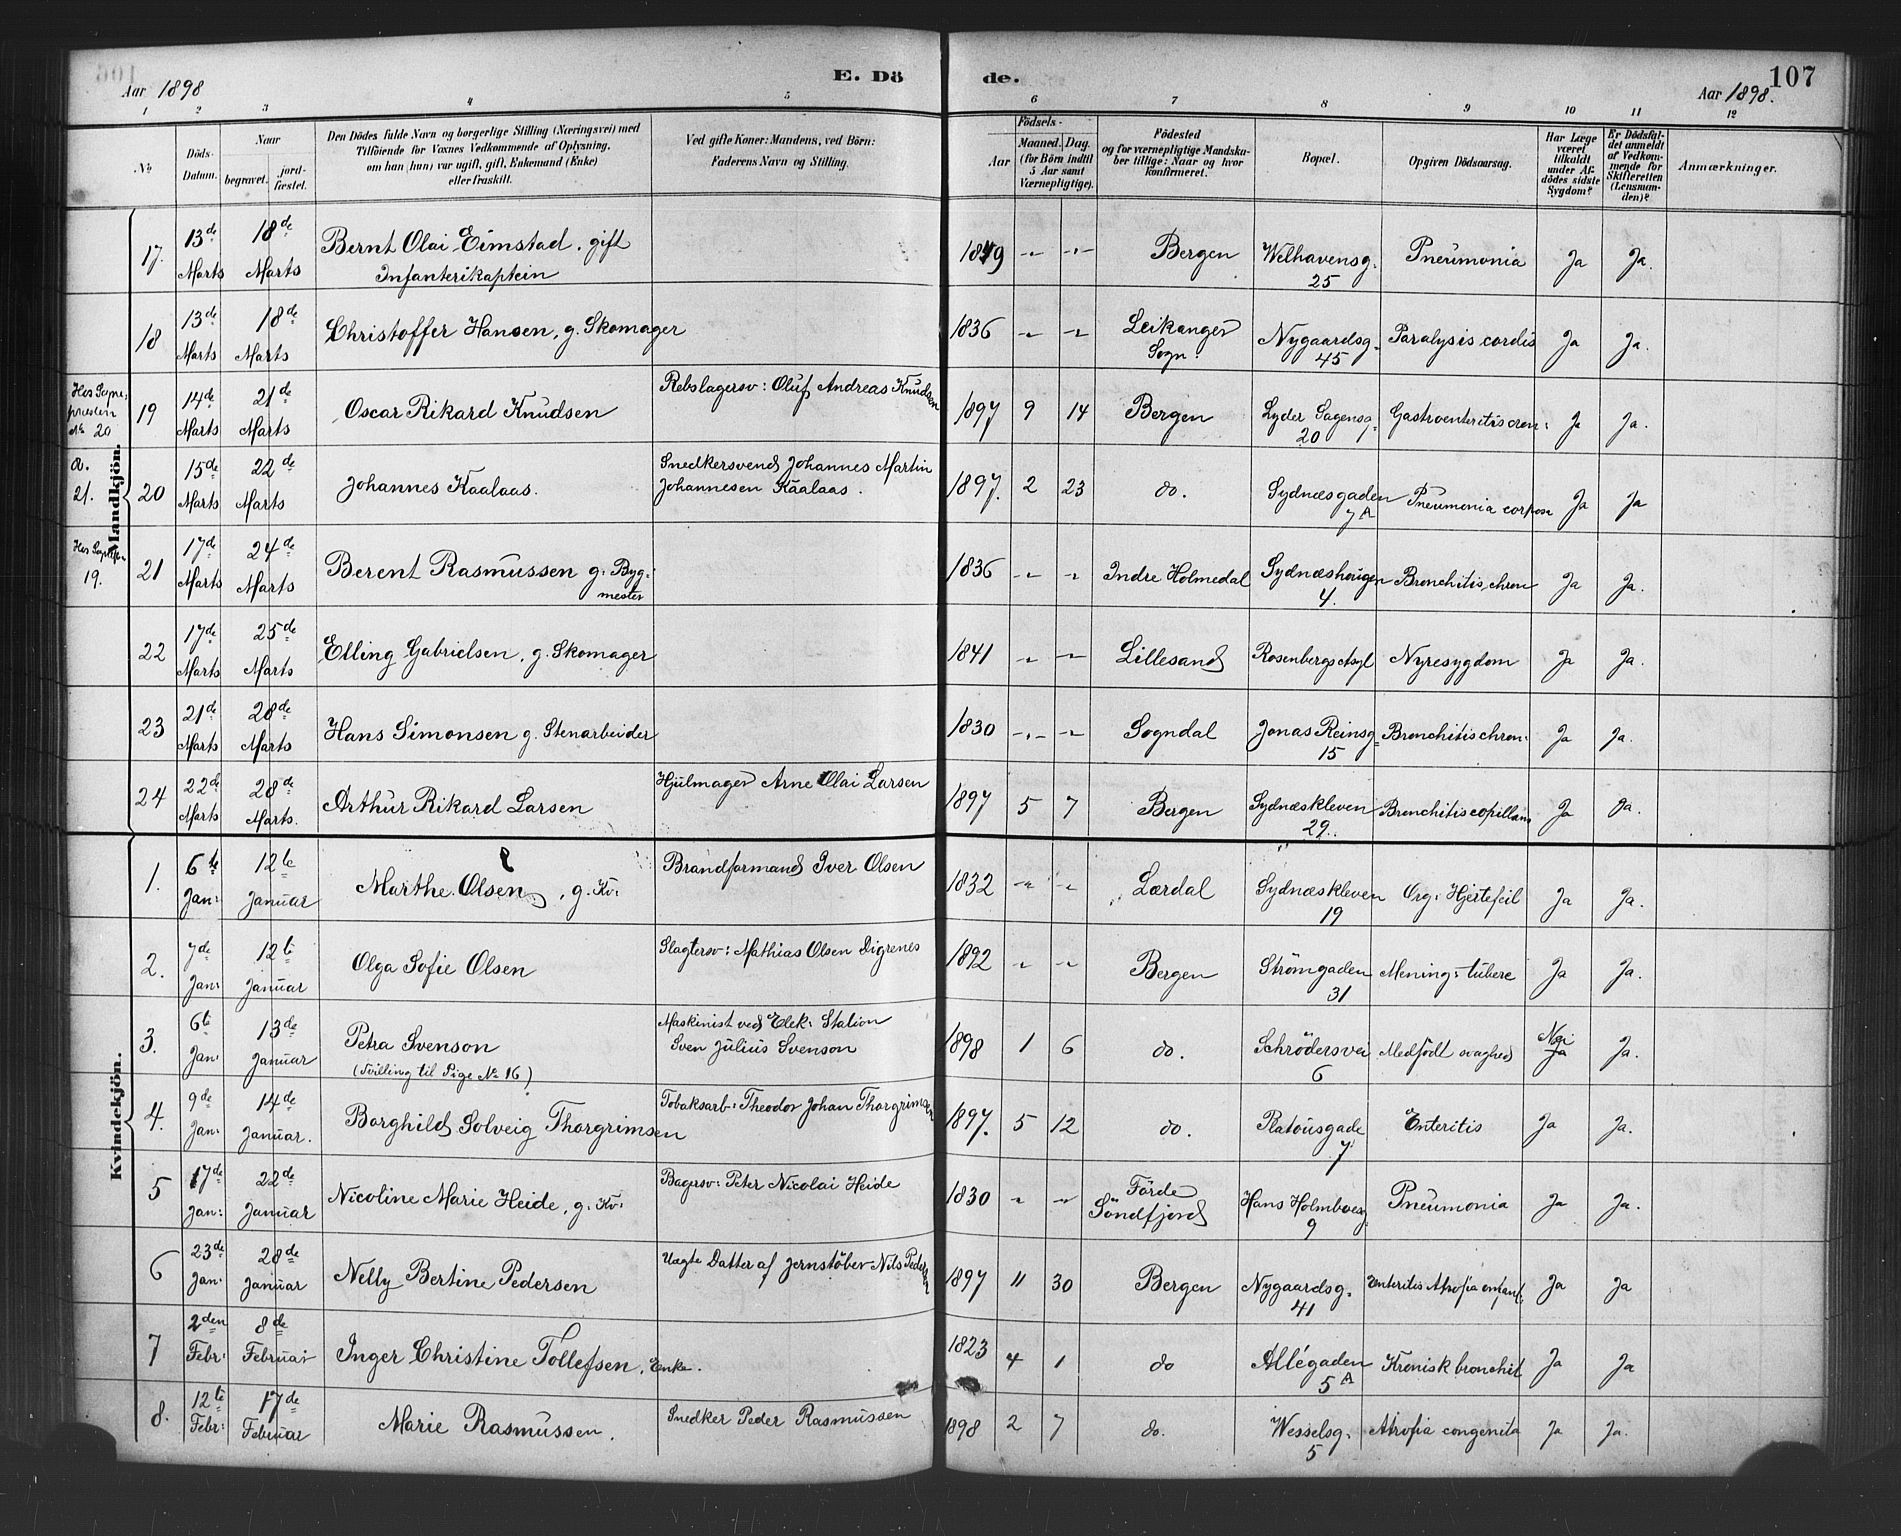 Aar 1898 E. Dö de. Aar 1898. 107
1 2 3 4 5 6 7 8 9 10 11 12
No
Döds-Datum.
Naar begravet. jord-fæstet.
Den Dödes fulde Navn og borgerlige Stilling (Næringsvei) med
Tilföiende for Voxnes Vedkommende af Oplysning,
om han (hun) var ugift, gift, Enkemand (Enke)
eller fraskilt.
Ved gifte Koner: Mandens, ved Börn:
Faderens Navn og Stilling.
Födsels-
Aar Maaned. Dag.
(for Börn indtil
5 Aar samt
Værnepligtige).
Födested
og for værnepligtige Mandska-
ber tillige: Naar og hvor
konfirmeret.
Bopæl.
Opgiven Dödsaarsag.
Har Læge
været
tilkaldt
under Af-
dödes sidste
Sygdom?
Er Dödsfal-
det anmeldt
af Vedkom-
mende for
Skifteretten
(Lensman-
den)?
Anmærkninger.
Mandkjön.
17. 13de Marts 18de Marts Bernt Olai Eimstad, gift Infanterikaptein 1849 -"- -"- Bergen Welhavensg. 25 Pneumonia Ja Ja.
18 13de Marts 18de Marts Christoffer Hansen, g. Skomager 1836 -"- -"- Leikanger Sogn. Nygaardsg. 45 Paralysis cordis Ja Ja.
No 20 19 14de Marts 21de Marts Oscar Rikard Knudsen Rebslagersv: Oluf Andreas Knudsen 1897 9 14 Bergen Lyder Sagensg. 20 Gastroenteritis cron: Ja Ja.
21. 20 15de Marts 22de Marts Johannes Kaalaas. Snedkersvend Johannes Martin
Johannesen Kaalaas. 1897. 2 23 do. Sydnæsgaden 7A Pneumonia Ja Ja
19. 21 17de Marts 24de Marts Berent Rasmussen g. Byg-
mester 1836 -"- -"- Indre Holmedal Sydnæshaugen 4. Bronchitis chron Ja Ja.
22 17de Marts 25de Marts Elling Gabrielsen, g. Skomager 1841 -"- -"- Lillesand Rosenbergs Asyl Nyresygdom Ja Ja.
23 21de Marts 28de Marts Hans Simonsen g. Stenarbeider 1830 -"- -"- Sogndal Jonas Reinsg. 15 Bronchitis chron: Ja Ja.
24 22de Marts 28de Marts. Arthur Rikard Larsen Hjulmager Arne Olai Larsen 1897 5 7 Bergen Sydnæskleven 29. Bronchitis Ja Ja.
Kvindekjön.
1. 6te Jan: 12te Januar Marthe Olsen, g. Kv: Brandformand Iver Olsen 1832 -"- -"- Lærdal Sydnæskleven 19 Org. Hjertefeil Ja Ja.
2. 7de Jan: 12te Januar Olga Sofie Olsen Slagtersv: Mathias Olsen Digrenes 1892 -"- -"- Bergen Strömgaden 31 Mening: tuberc Ja Ja.
3. 6te Jan: 13de Januar Petra Svenson
(Tvilling til Pige No 16) Maskinist ved Elek: Station
Sven Julius Svenson 1898 1 6 do. Schrödersvei 6 Medfödt svaghed Nei Ja Ja.
4. 9de Jan: 14de Januar. Borghild Solveig Thorgrimsen Tobaksarb: Theodor Johan Thorgrimsen 1897. 5 12 do. Platousgade 7 Enteritis Ja Ja.
5 17de Jan: 22de Januar Nicoline Marie Heide, g. Kv: Bagersv: Peter Nicolai Heide 1830 -"- -"- Förde Söndfjord Hans Holmboesg. 9 Pneumonia Ja Ja.
6 23de Jan: 28de Januar Nelly Bertine Pedersen Uægte Datter af Jernstöber Nils Pedersen 1897 11 30 Bergen Nygaardsg. 41 Enteritis Atrofia Ja Ja
7 2den Febr: 8de Februar Inger Christine Tollefsen, Enke. 1823 4 1 do Allégaden 5A Kronisk bronchit Ja Ja
8. 12te Febr: 17de Februar Marie Rasmussen. Snedker Peder Rasmussen 1898 2 7 do. Wesselsg. 5 Atrofia congenita Ja Ja.